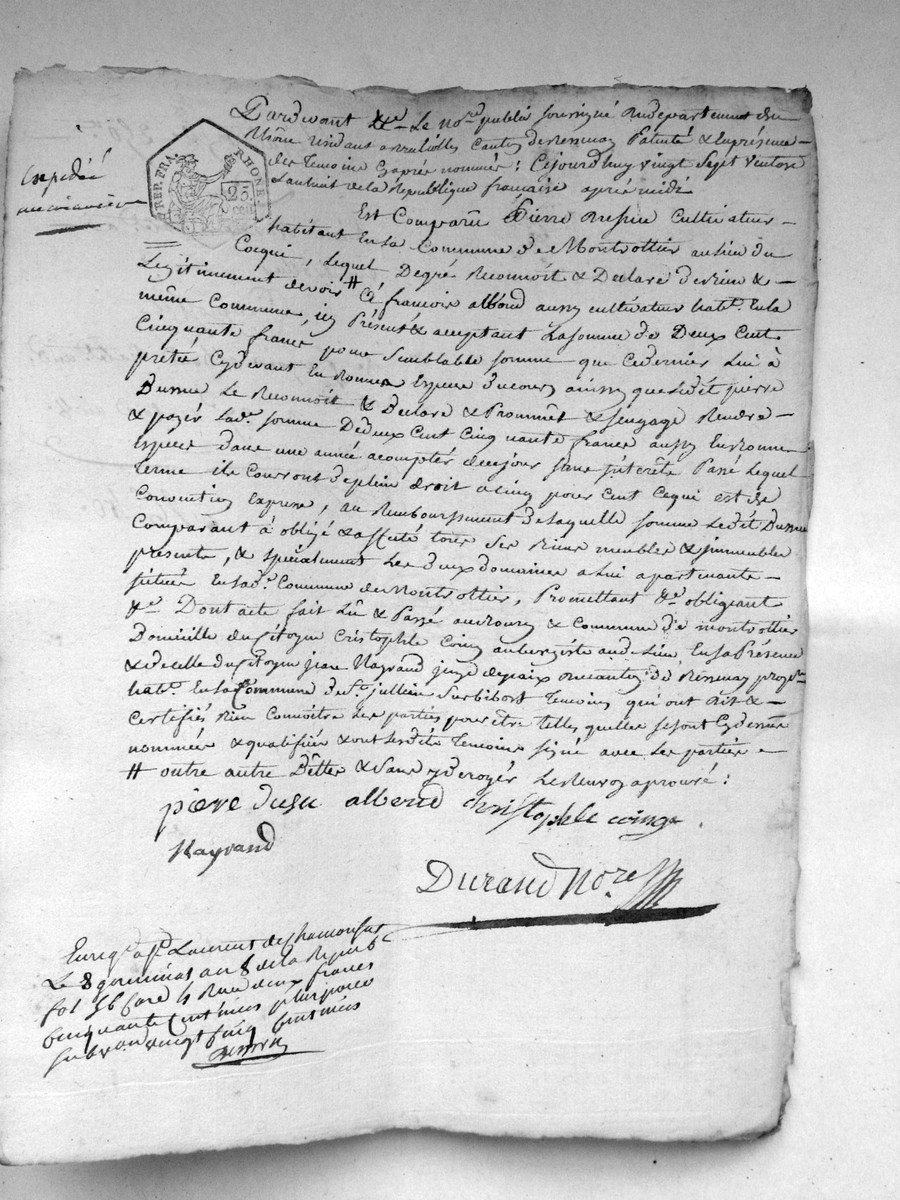 Pardevant Le nore public soussigné au departement du
Rhône residant a canton de Bessenay Patenté & En presence
des temoins cy après nommés : Cejourd'huy vingt sept ventose
L'an huit de la Republique française après midi
Est Comparu Pierre Dussu Cultivateur
habitant En La Commune de Montrottier au lieu du
Lequel De gré Reconnoit & Declare devoir bien &
Legitimement devoir # à françois alboud aussy cultivateur habt. En la
même Commune, icy Présent & acceptant La somme de Deux Cent
Cinquante francs pour semblable somme que ce dernier lui à
preté Cy devant En Bonnes Especes du cours ainssy que ledit pierre
Dussu Le Reconnoit & Declare & Prommet & s'engage Rendre
& payer lad. somme De deux Cent Cinquante francs aussy En Bonnes
Espèces dans une année a compter de ce jour sans interêts Passé Lequel
Terme ils Courront de plein droit a cinq pour Cent Ce qui est de
Convention Expresse, au Remboursement de laquelle somme Ledit Dussu
Comparant à obligé & affecté tous ses Biens meubles & immeubles
presents, & specialement Les deux domaines a Lui apartenants
situés En lad. Commune de Montrottier, Promettant &c. obligeant
&c. Dont acte fait Lû & Passé au Bourg & Commune de montrottier
Domicille du Citoyen Cristophle Coing aubergiste aud. Lieu, En sa Présence
& de celle du Citoyen jean Nayrand juge de paix du canton de Bessenay
habt. En la Commune de St. jullien sur bibost Temoins qui ont Dit &
certifiés Bien Connoitre Les parties pour être telles quelles se sont Cy dessus
nommées & qualifiés & ont Lesdits Temoins signé avec Les parties
# outre autre Dettes & sans y deroger Le Renvoy aprouvé :
pierre dusu alboud christophle coing
Nayrand
Durand Nore
Expedié
REP. FRA.
RHONE
25.
cen.
Enregt. a St. Laurent de Chamousset
Le 8 germinal an 8 de la Repub
fol 56 Case 4 Reçu deux francs
cinquante Centimes plus pour
subvon vingt cinq centimes